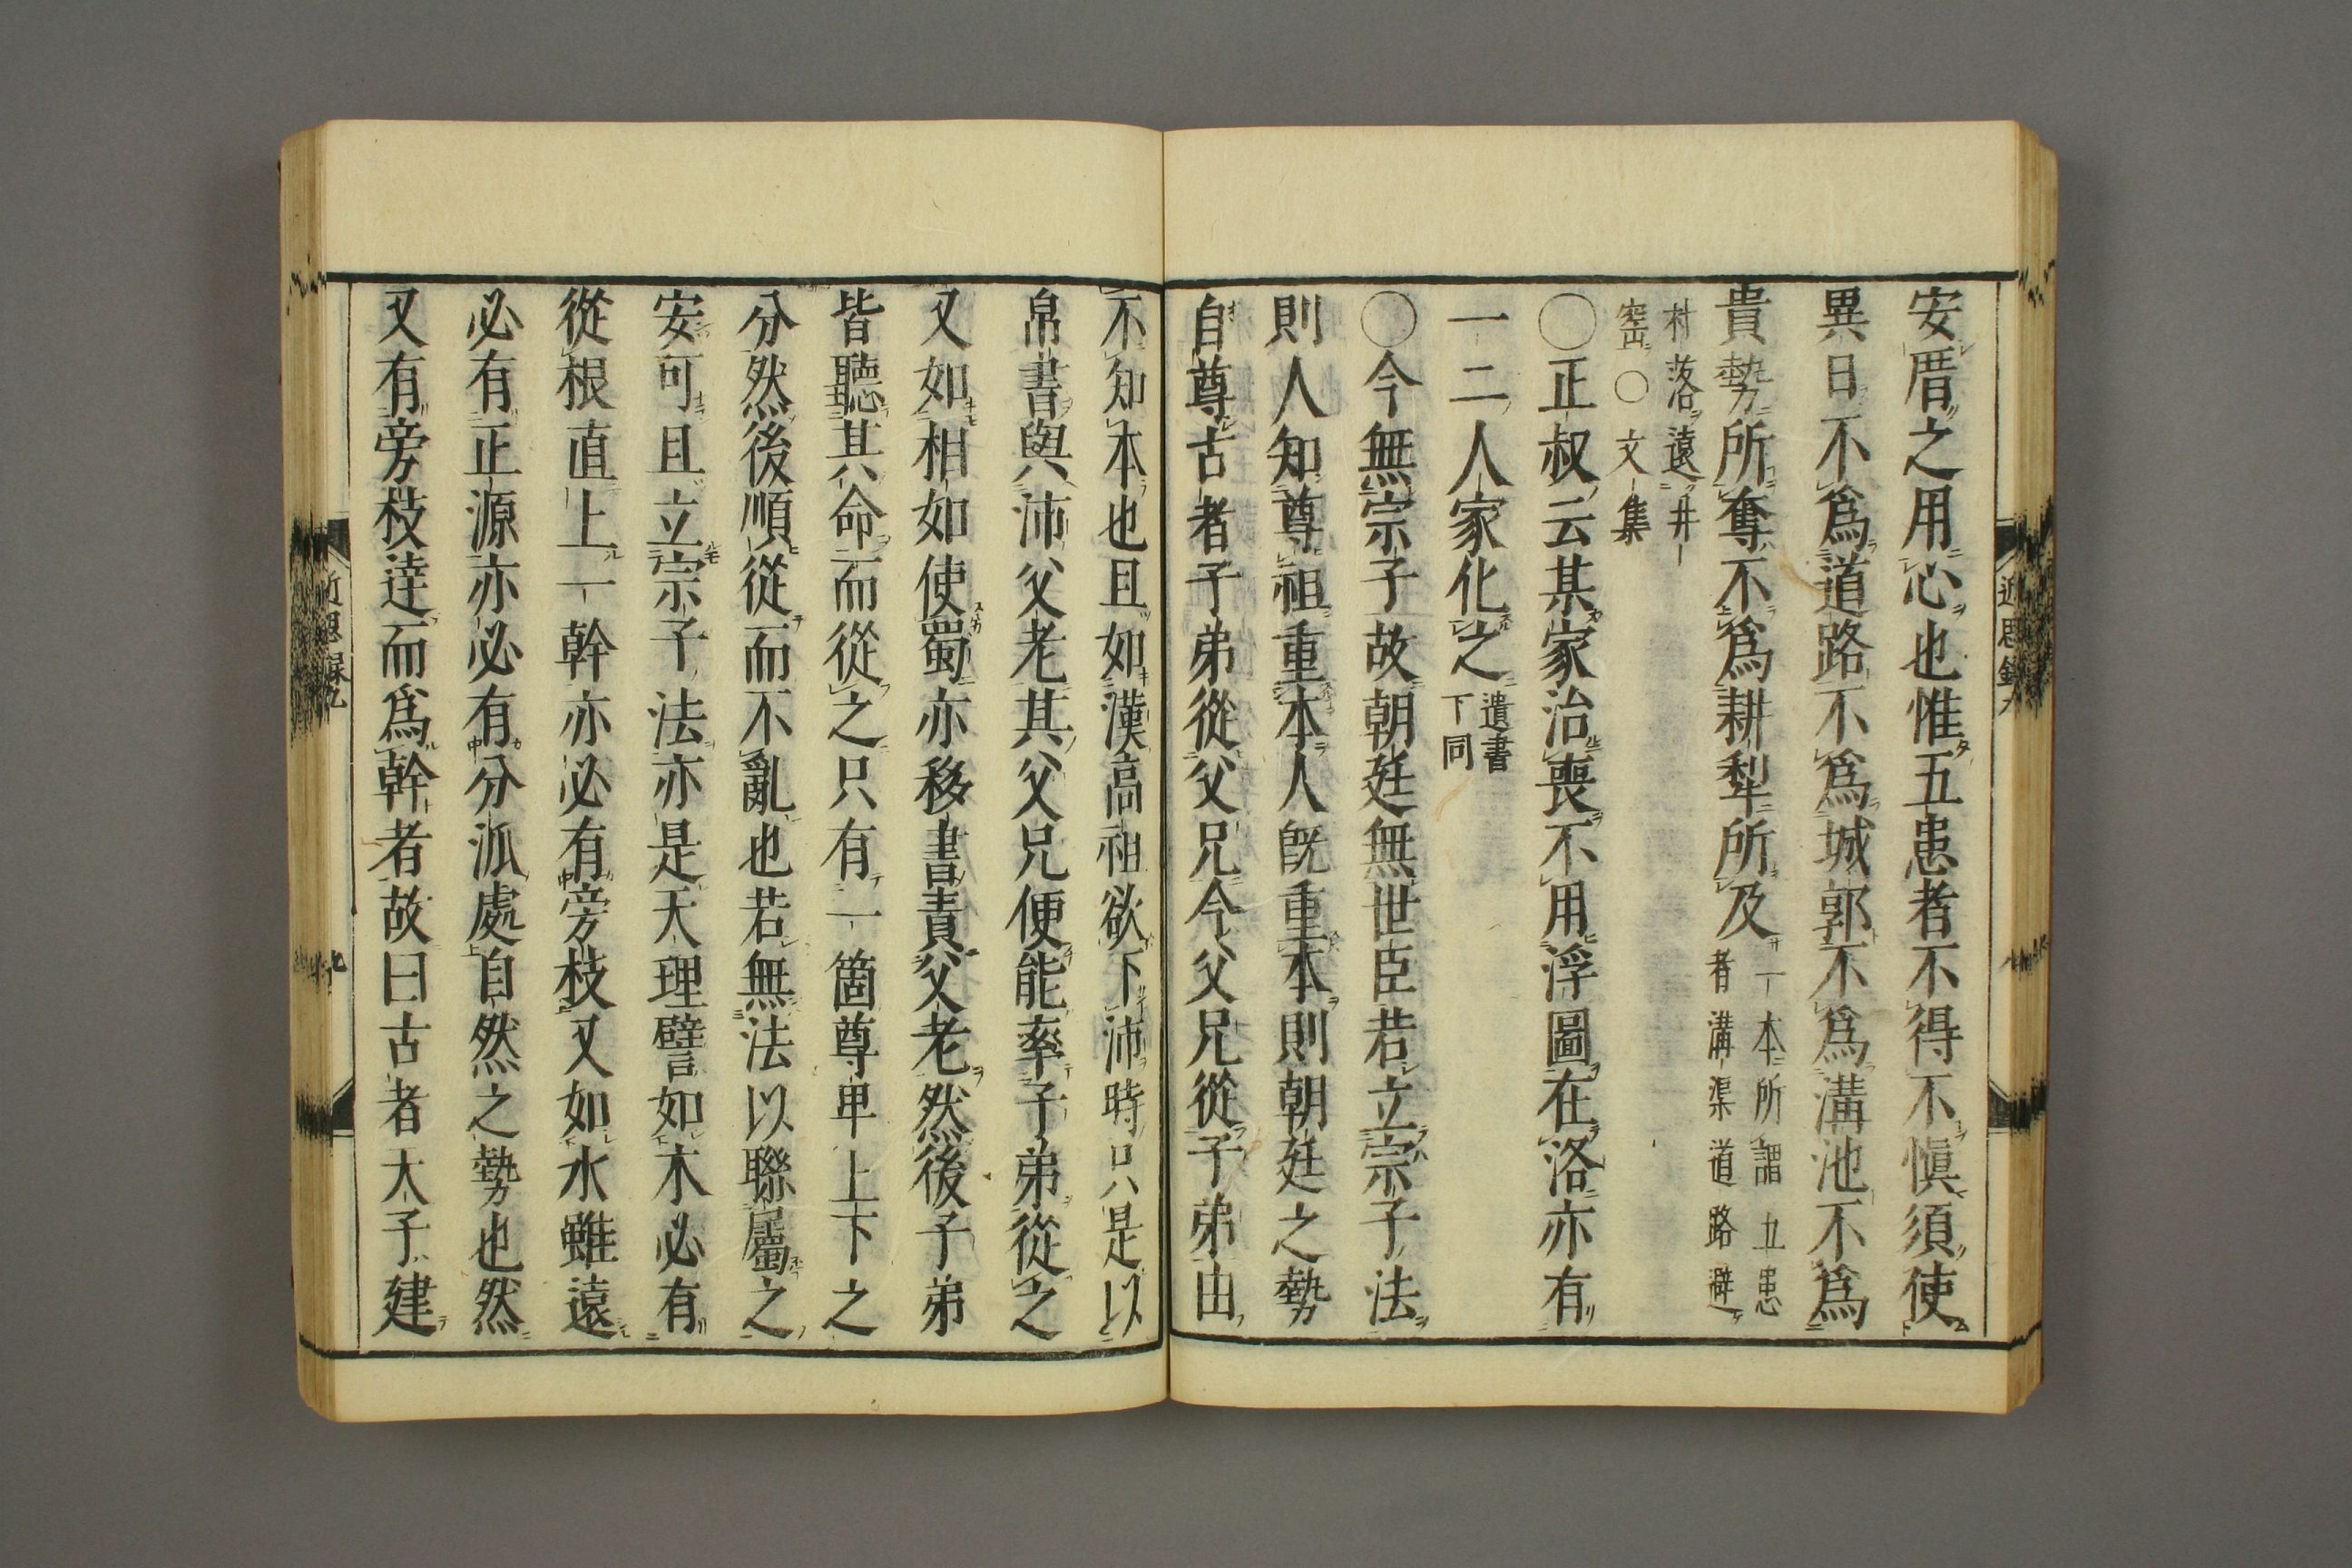 安厝之用心也惟五患者不得不愼須使
異日不爲道路不爲城郭不爲溝池不爲
貴勢所奪不爲耕犁所及
一本所謂五患
者溝渠道路避
村落遠井
窑〇文集
〇正叔云某家治喪不用浮圖在洛亦有
一二人家化之
遺書
下同
〇今無宗子故朝廷無世臣若立宗子法
則人知尊祖重本人旣重本則朝廷之勢
自尊古者子弟從父兄今父兄從子弟由
不知本也且如漢高祖欲下沛時只是以
帛書與沛父老其父兄便能率子弟從之
又如相如使蜀亦移書責父老然後子弟
皆聽其命而從之只有一箇尊卑上下之
分然後順從而不亂也若無法以聯屬之
安可且立宗子法亦是天理譬如木必有
從根直上一幹亦必有旁枝又如水雖遠
必有正源亦必有分派處自然之勢也然
又有旁枝達而爲幹者故曰古者天子建
近思錄九
九